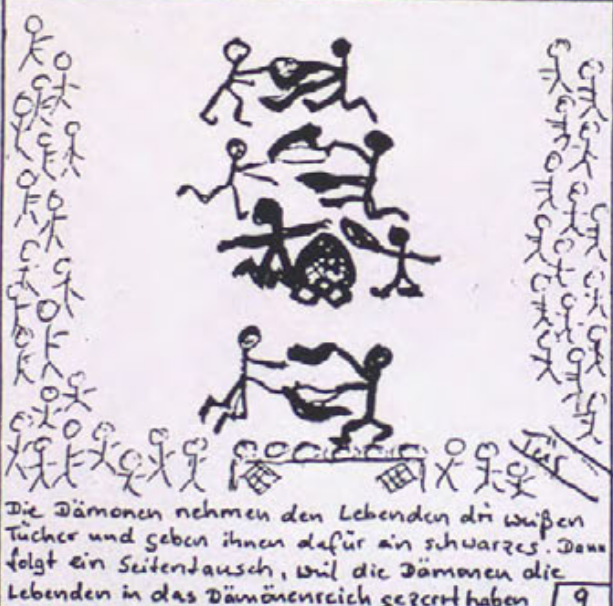 Tür
Die Dämonen nehmen den Lebenden dri weißen
Tücher und geben ihnen dafür ein schwarzes. Dann
folgt ein Seitentausch, wil die Dämonen die
Lebenden in das Dämönenreich gezerrt haben
9